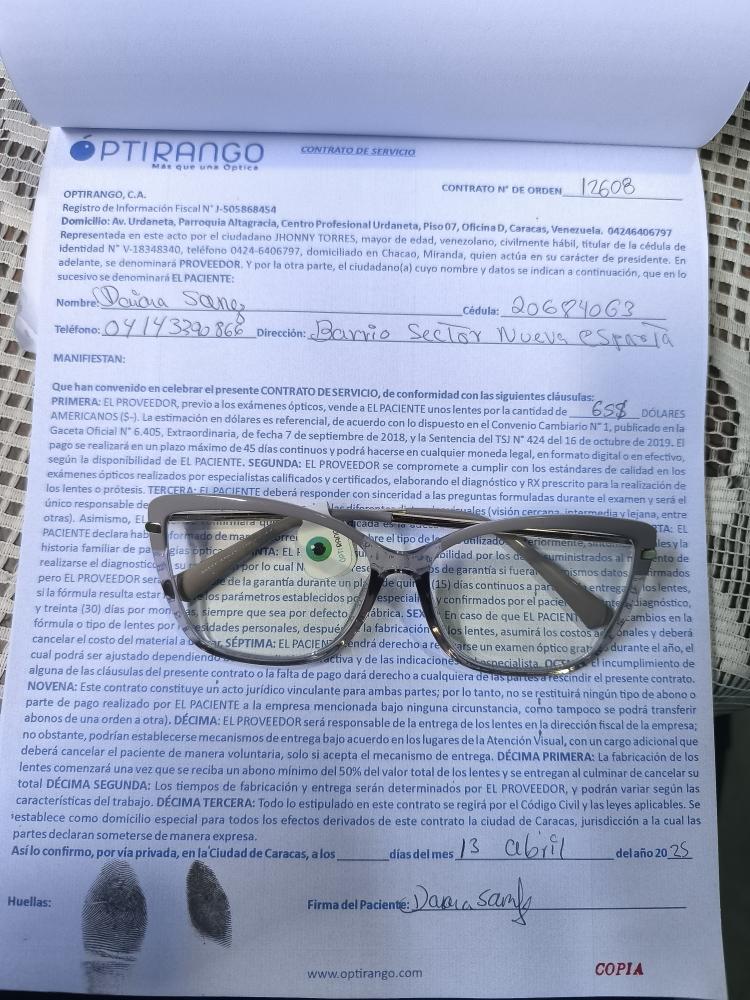 OPTIRANGO
Más que una Óptica
CONTRATO DE SERVICIO
CONTRATO N° DE ORDEN 12608
OPTIRANGO, C.A.
Registro de Información Fiscal N° J-505868454
Domicilio: Av. Urdaneta, Parroquia Altagracia, Centro Profesional Urdaneta, Piso 07, Oficina D, Caracas, Venezuela. 04246406797
Representada en este acto por el ciudadano JHONNY TORRES, mayor de edad, venezolano, civilmente hábil, titular de la cédula de
identidad N° V-18348340, teléfono 0424-6406797, domiciliado en Chacao, Miranda, quien actúa en su carácter de presidente. En
adelante, se denominará PROVEEDOR. Y por la otra parte, el ciudadano(a) cuyo nombre y datos se indican a continuación, que en lo
sucesivo se denominará EL PACIENTE:
Nombre: Cédula: 20684063
Teléfono: 04143390866 Dirección: Barrio Sector Nueva esparta
MANIFIESTAN:
Que han convenido en celebrar el presente CONTRATO DE SERVICIO, de conformidad con las siguientes cláusulas:
PRIMERA: EL PROVEEDOR, previo a los exámenes ópticos, vende a EL PACIENTE unos lentes por la cantidad de 65$ DÓLARES
AMERICANOS (S-). La estimación en dólares es referencial, de acuerdo con lo dispuesto en el Convenio Cambiario N° 1, publicado en la
Gaceta Oficial N° 6.405, Extraordinaria, de fecha 7 de septiembre de 2018, y la Sentencia del TSJ N° 424 del 16 de octubre de 2019. El
pago se realizará en un plazo máximo de 45 días continuos y podrá hacerse en cualquier moneda legal, en formato digital o en efectivo,
según la disponibilidad de EL PACIENTE. SEGUNDA: EL PROVEEDOR se compromete a cumplir con los estándares de calidad en los
exámenes ópticos realizados por especialistas calificados y certificados, elaborando el diagnóstico y RX prescrito para la realización de
los lentes o prótesis. TERCERA: EL PACIENTE deberá responder con sinceridad a las preguntas formuladas durante el examen y será el
único responsable de visuales (visión cercana, intermedia y lejana, entre
otras). Asimismo, EL CUARTA: EL
PACIENTE declara haber informado de bre el tipo de utilizado
historia familiar de patologías suministrados al momento de
realizarse el diagnostico por lo cual N de garantía si fueran mismos datos
pero EL PROVEEDOR de la garantía durante un de quince (15) días continuos a entrega los lentes,
si la fórmula resulta los parámetros establecidos confirmados por el paciente diagnóstico,
y treinta (30) días por siempre que sea por defecto fábrica. En caso de que EL PACIENTE cambios en la
fórmula o tipo de lentes por necesidades personales, después la fabricación los lentes, asumirá los costos adicionales y deberá
cancelar el costo del material a SÉPTIMA: EL tendrá derecho a un examen óptico durante el año, el
cual podrá ser ajustado dependiendo y de las indicaciones especialista. El incumplimiento de
alguna de las cláusulas del presente contrato o la falta de pago dará derecho a cualquiera de las partes a rescindir el presente contrato.
NOVENA: Este contrato constituye un acto jurídico vinculante para ambas partes; por lo tanto, no se restituirá ningún tipo de abono o
parte de pago realizado por EL PACIENTE a la empresa mencionada bajo ninguna circunstancia, como tampoco se podrá transferir
abonos de una orden a otra). DÉCIMA: EL PROVEEDOR será responsable de la entrega de los lentes en la dirección fiscal de la empresa;
no obstante, podrían establecerse mecanismos de entrega bajo acuerdo en los lugares de la Atención Visual, con un cargo adicional que
deberá cancelar el paciente de manera voluntaria, solo si acepta el mecanismo de entrega. DÉCIMA PRIMERA: La fabricación de los
lentes comenzará una vez que se reciba un abono mínimo del 50% del valor total de los lentes y se entregan al culminar de cancelar su
total DÉCIMA SEGUNDA: Los tiempos de fabricación y entrega serán determinados por EL PROVEEDOR, y podrán variar según las
características del trabajo. DÉCIMA TERCERA: Todo lo estipulado en este contrato se regirá por el Código Civil y las leyes aplicables. Se
establece como domicilio especial para todos los efectos derivados de este contrato la ciudad de Caracas, jurisdicción a la cual las
partes declaran someterse de manera expresa.
Así lo confirmo, por vía privada, en la Ciudad de Caracas, a los días del mes 13 abril del año 2025
Huellas: Firma del Paciente:
www.optirango.com
COPIA